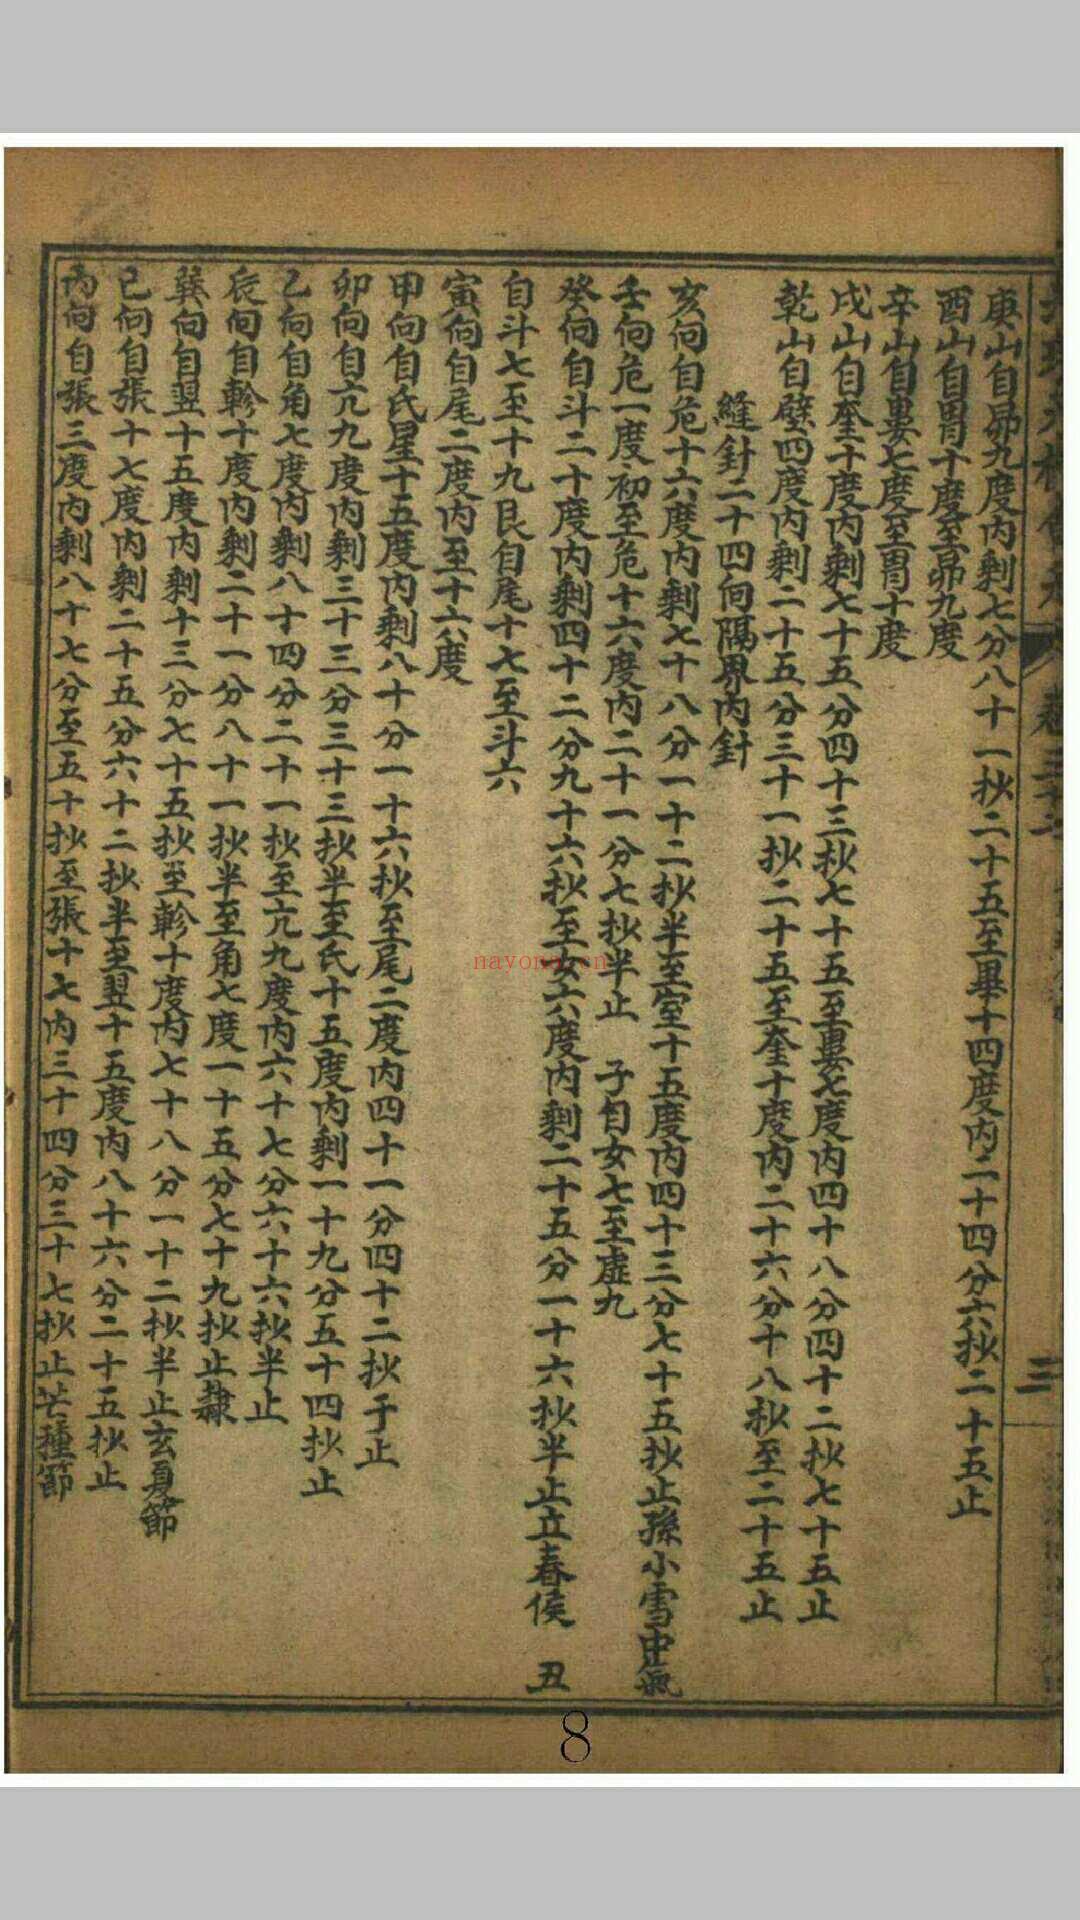 庚山自昴九度内剩七分八十一抄二十五至畢十四度内二十四分六抄二十五止
酉山自胃十度至昴九度
辛山自婁七度至胃十度
戌山自奎十度内剩七十五分四十三抄七十五至婁七度内四十八分四十二抄七十五止
乾山自壁四度内剩二十五分三十一抄二十五至奎十度内二十六分十八抄至二十五止
縫針二十四向隔界内針
亥向自危十六度内剩七十八分一十二抄半至室十五度内四十三分七十五抄止孫小雪中氣
壬向危一度初至危十六度内二十一分七抄半止 子自女七至虛九
癸向自斗二十度内剩四十二分九十六抄至女六度内剩二十五分一十六抄半止立春侯 丑
自斗七至十九艮自尾十七至斗六
寅向自尾二度内至十六度
甲向自氐星十五度内剩八十分一十六抄至尾二度内四十一分四十二抄于止
卯向自亢九度内剩三十三分三十三抄半至氐十五度内剩一十九分五十四抄止
乙向自角七度内剩八十四分二十一抄至亢九度内六十七分六十六抄半止
辰向自軫十度内剩二十一分八十一抄半至角七度一十五分七十九抄止隷
巽向自翌十五度内剩十三分七十五抄至軫十度内七十八分一十二抄半止玄夏節
巳向自張十七度内剩二十五分六十二抄半至翌十五度内八十六分二十五抄止
丙向自張三度内剩八十七分至五十抄至張十七内三十四分三十七抄止芒種節
三
8
nayona.cn